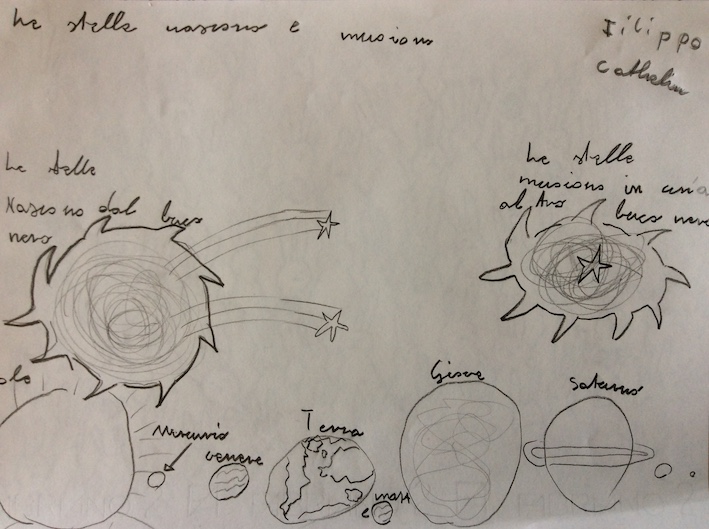 Le stelle nascono e muoiono
Filippo
Le stelle
Nascono dal buco
nero
Le stelle
muoiono in
buco nero
Mercurio
venere
Terra
Giove
Saturno